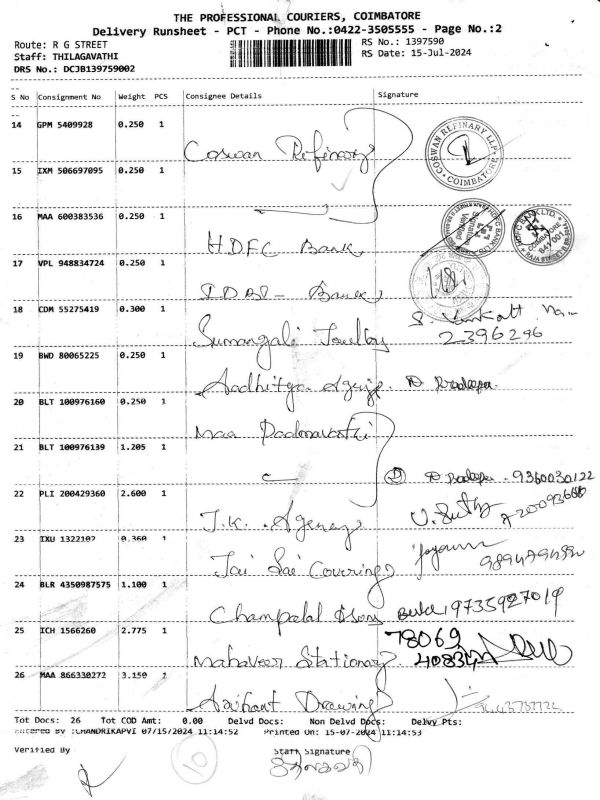 THE PROFESSIONAL COURIERS, COIMBATORE
Delivery Runsheet - PCT - Phone No.:0422-3505555 - Page No.:2
Route: R G STREET RS No.: 1397590
Staff: THILAGAVATHI RS Date: 15-Jul-2024
DRS No.: DCJB139759002
S No Consignment No Weight PCS Consignee Details Signature
14 GPM 5409928 0.250 1 Coswan Refinary COSWAN REFINARY LLP COIMBATORE
15 IXM 506697095 0.250 1
16 MAA 600383536 0.250 1 HDFC Bank
17 VPL 948834724 0.250 1 IDBI - Bank
18 CDM 55275419 0.300 1 Sumangali Jwellery 2396296
19 BWD 80065225 0.250 1 Aadhitya Agency
20 BLT 100976160 0.250 1 Maa Padmavathi
21 BLT 100976139 1.205 1 9360030122
22 PLI 200429360 2.600 1 J.K. Agency
23 IXU 1322102 0.360 1 Jai Sai Covering
24 BLR 4350987575 1.100 1 Champalal & Sons
25 ICH 1566260 2.775 1 Mahaveer Stationary 78069
26 MAA 866330272 3.150 1 Arihant Drawing
Tot Docs: 26 Tot COD Amt: 0.00 Delvd Docs: Non Delvd Docs: Delvy Pts:
Entered By :CHANDRIKAPVI 07/15/2024 11:14:52 Printed On: 15-07-2024 11:14:53
Verified By Staff Signature
10